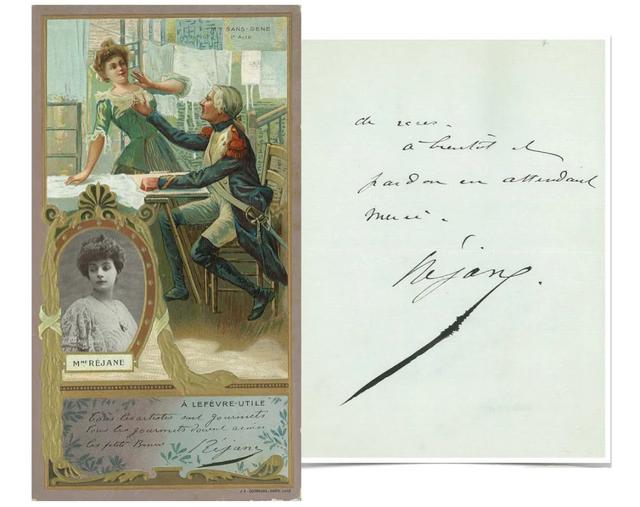 SANS-GÊNE
1er ACTE
MME RÉJANE
À LEFÈVRE-UTILE
Tous les artistes sont gourmets
Tous les gourmets doivent aimer
les petits Beurre
Réjane
de
à bientôt et
pardon en attendant
merci.
Réjane.